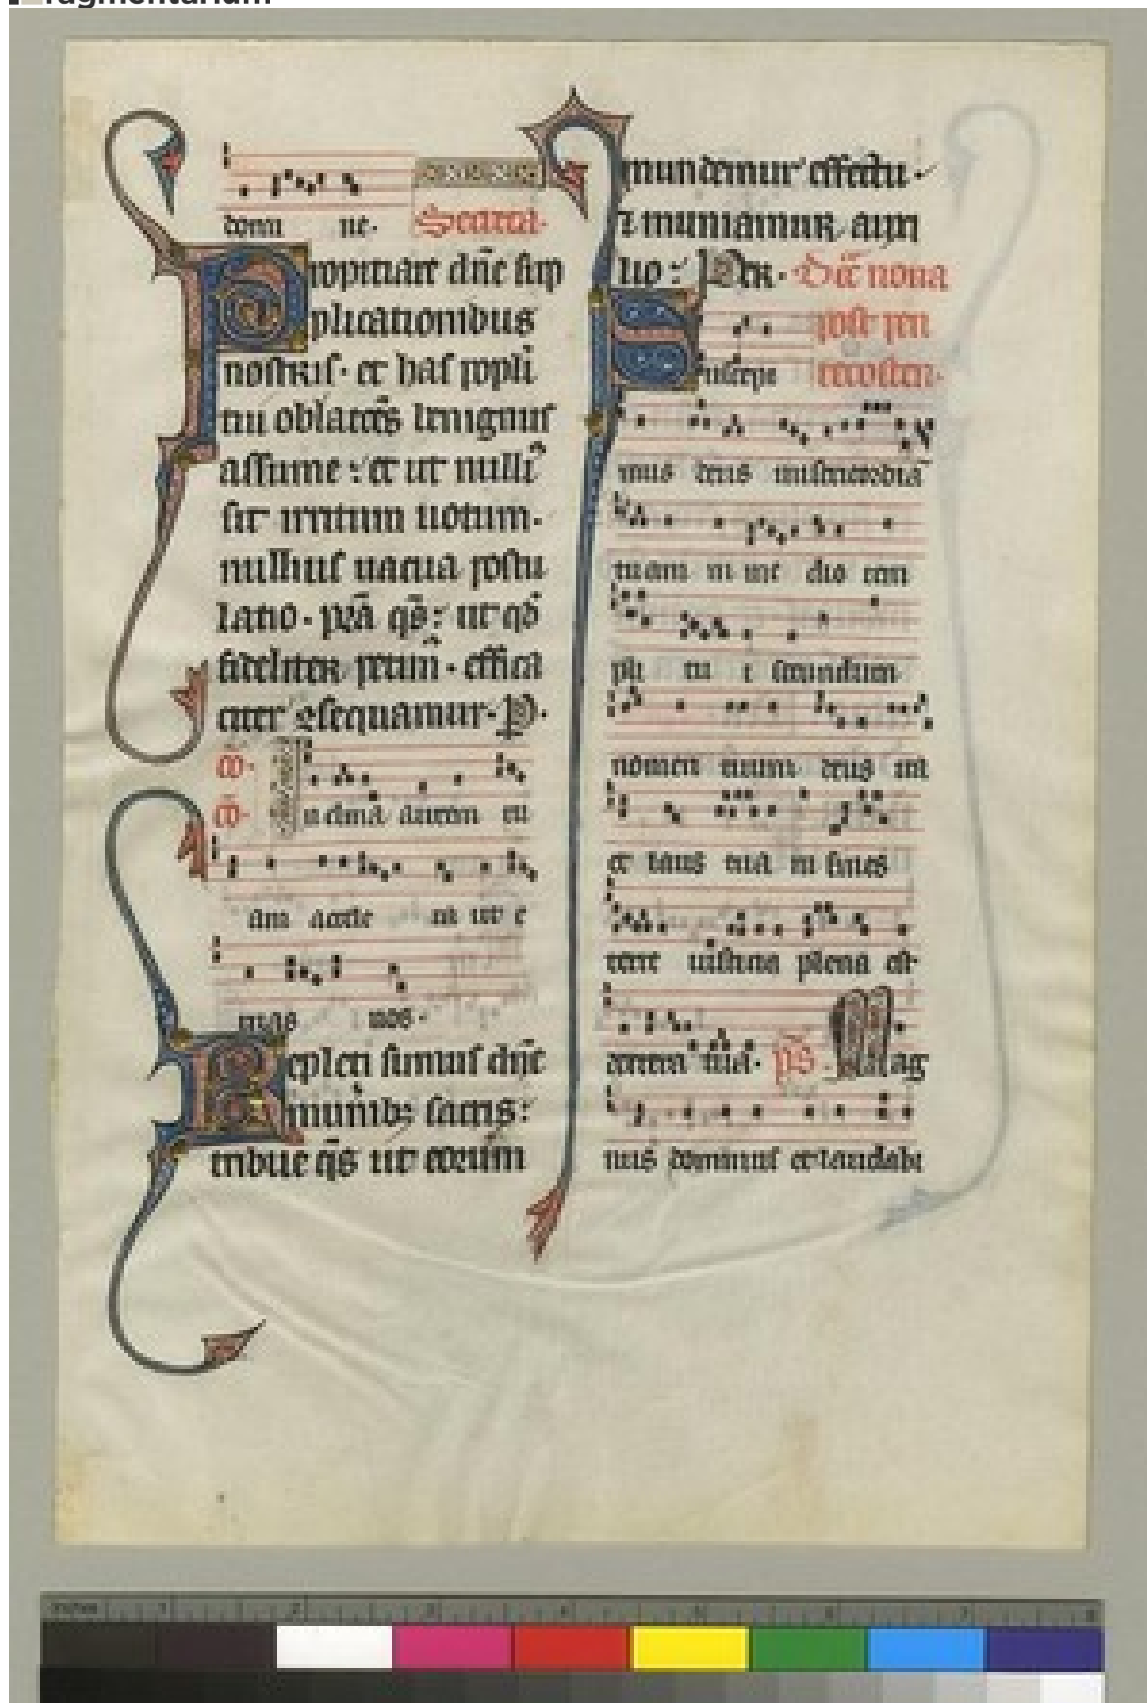 fragmentarium
domi ne. Secreta.
Propitiare dñe sup
plicationibus
nostris. et has popli
tui oblatões benignus
assume : et ut nulliꝰ
sit irritum uotum.
nullius uacua postu
latio. pr̃a qs̃: ut qð
fideliter petimꝰ. effica
citer ꝯsequamur. P.
Inclina aurem tu
am accele ra ut e
ruas nos.
Repleti sumus dñe
munĩb; sacris:
tribue qs̃ ut eorum
mundemur effectu.
⁊ muniamur auxi
lio : Per. Dc̃ nona
post pen
Suscepi tecosten.
mus deus misericordiã
tuam in me dio tem
pli tu i secundum
nomen tuum deus ita
et laus tua in fines
terre iusticia plena est
dextera tua. ps̃. Mag
nus dominus et laudabi
inches 1 2 3 4 5 6 7 8